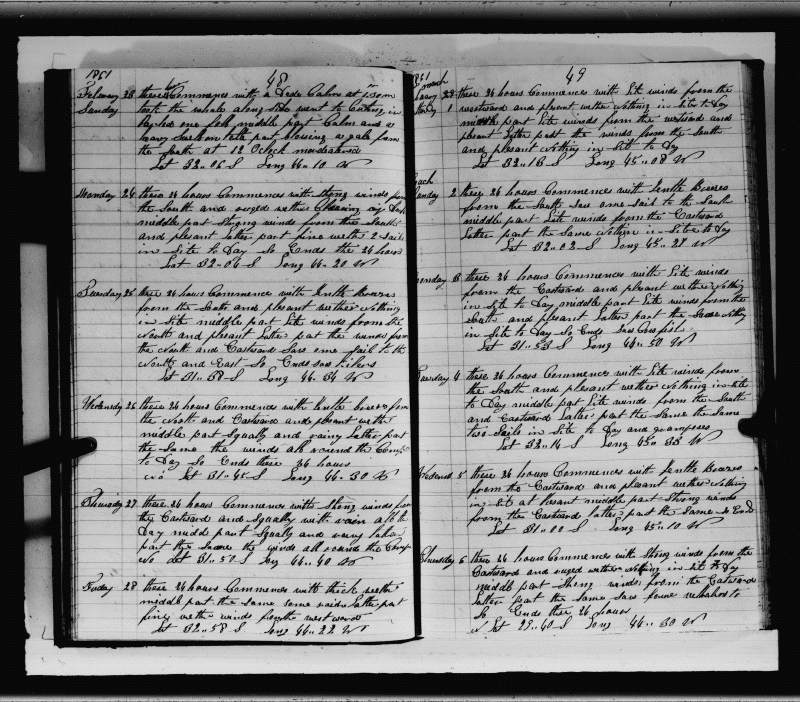 1861 48
February 23 these Commence with a Calm at 1:30 pm
Sunday took the whale along side went to Cuting in
one fell middle part Calm and a
heavy part blowing a gale from
the South at 12 Oclock
Lat 32..06 S Long 44..10 W
Monday 24 these 24 hours Commences with strong winds from
the South and ruged wether
middle part Strong winds from the South
and plesant latter part fine wether 2 Sails
in Site to Day So Ends the 24 hours
Lat 32..04 S Long 44..20 W
Tuesday 25 these 24 hours Commences with Jentle Breeses
from the South and plesant wether Nothing
in Site middle part Lite winds from the
North and plesant Latter part the winds from
the North and Eastward Saw one Sail to the
North and East So Ends
Lat 31..58 S Long 44..54 W
Wedensdy 26 these 24 hours Commences with Jentle breses from
the North and Eastward and plesant wether
middle part Squally and rainy latter part
the Same the winds all round the Comps
to Day So Ends these 24 hours
Lat 31..45 S Long 44..30 W
Thursday 27 these 24 hours Commences with Strong winds from
the Eastward and Squally with rain all the
Day midd part Squally and rainy latter
part the Same the winds all round the Comps
Lat 31..50 S Long 44..40 W
Friday 28 these 24 hours Commences with thick wether
middle part the same some rain latter part
finy wether winds from the westward
Lat 32..58 S Long 44..22 W
1861 49
March these 24 hours Commences with Lite winds from the
1 westward and plesant wether Nothing in Site to Day
middle part Lite winds from the westward and
plesant latter part the winds from the South
and plesant Nothing in Sit to Day
Lat 32..18 S Long 45..08 W
2 these 24 hours Commences with Jentle Breeses
from the South Saw one Sail to the South
middle part Lite winds from the Eastward
Latter part the Same Nothing in Site to Day
Lat 32..02 S Long 45..27 W
Monday 3 these 24 hours Commences with Lite winds
from the Eastward and plesant wether Nothing
in Site to Day middle part Lite winds from the
South and plesant Latter part the Same Nothing
in Site to Day So Ends
Lat 31..53 S Long 44..50 W
Tuesday 4 these 24 hours Commences with Lite winds from
the South and plesant wether Nothing in Site
to Day middle part Lite winds from the South
and Eastward Latter part the Same the Same
two Sails in Site to Day and grampuses
Lat 32..14 S Long 45..33 W
Wedensd 5 these 24 hours Commences with Jentle Breeses
from the Eastward and plesant wether Nothing
in Sit at Plesant middle part Strong winds
from the Eastward latter part the Same So Ends
Lat 31..00 S Long 45..10 W
Thursday 6 these 24 hours Commences with Strong winds from the
Eastward and ruged wether Nothing in Sit to Day
middle part Strong winds from the Eastward
latter part the same saw
So Ends these 24 hours
Lat 29..40 S Long 44..30 W